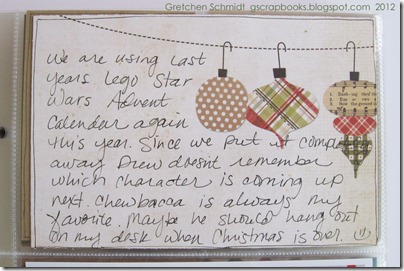 Gretchen Schmidt gscrapbooks.blogspot.com 2012
We are using last
years Lego Star
Wars Advent
Calendar again
this year. Since we put it
away Drew doesnt remember
which character is coming up
next. Chewbacca is always my
favorite. Maybe he should hang out
on my desk when Christmas is over.